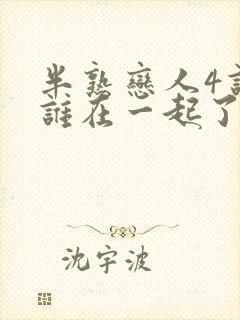 半熟戀人4誰
誰在一起了
沈宇波